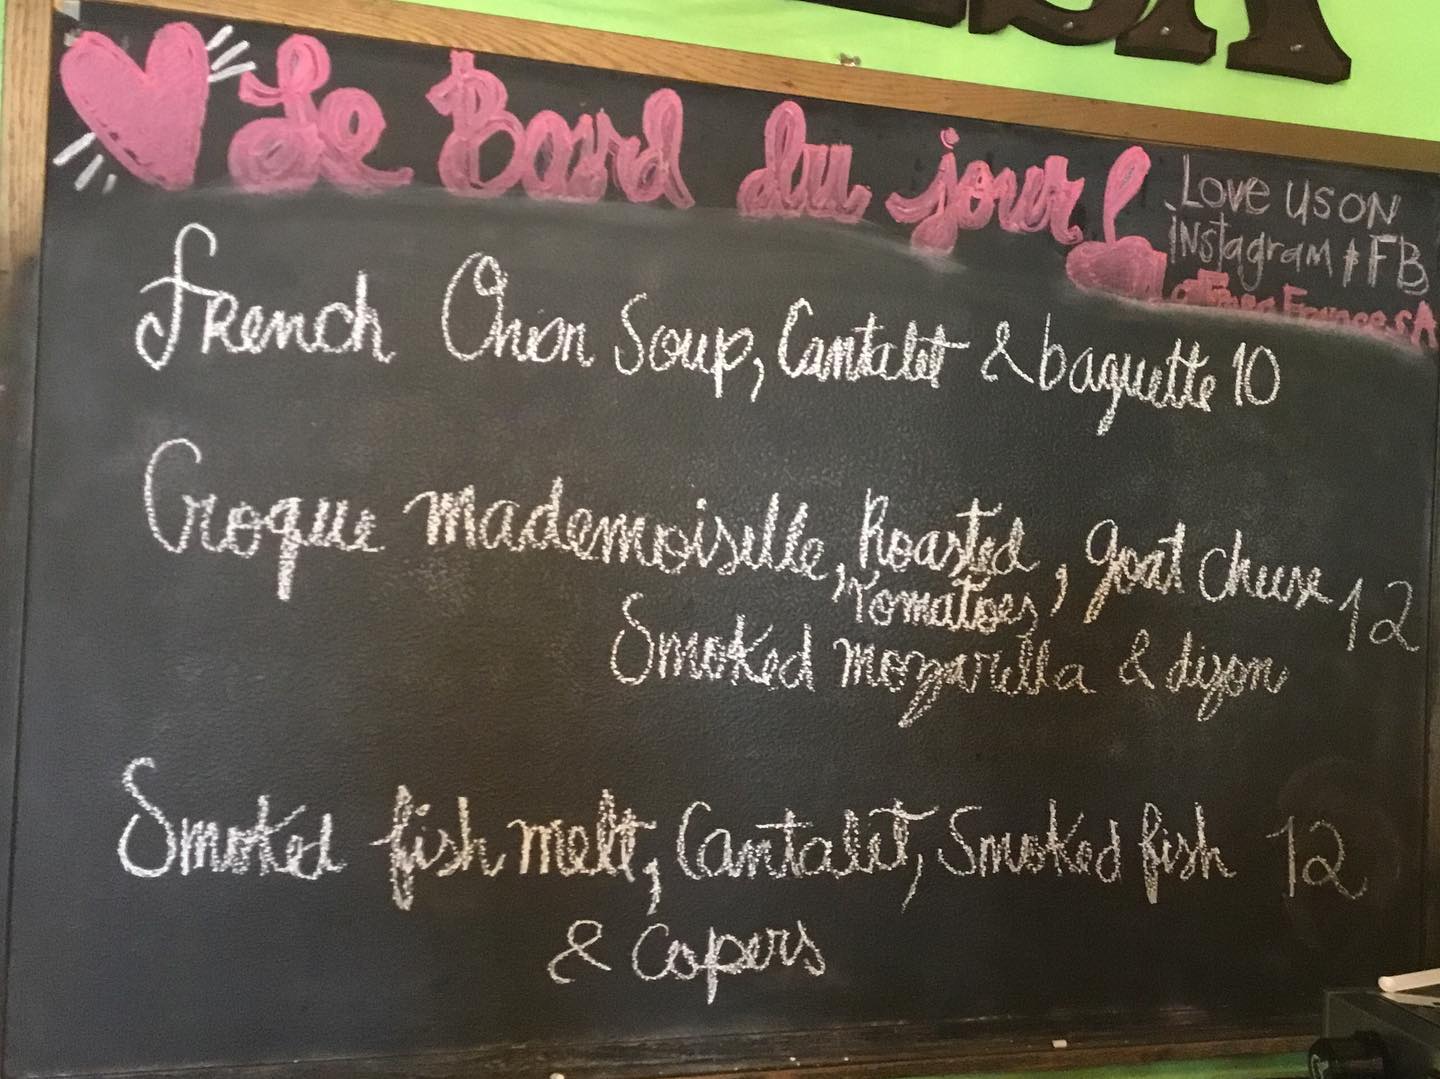 Le Board du jour!
Love us on
instagram & FB
French Onion Soup, Cantalet & baguette 10
Croque mademoiselle, Roasted tomatoes, goat cheese 12
Smoked mozzarella & dijon
Smoked fish melt, Cantalet, Smoked fish 12
& Capers